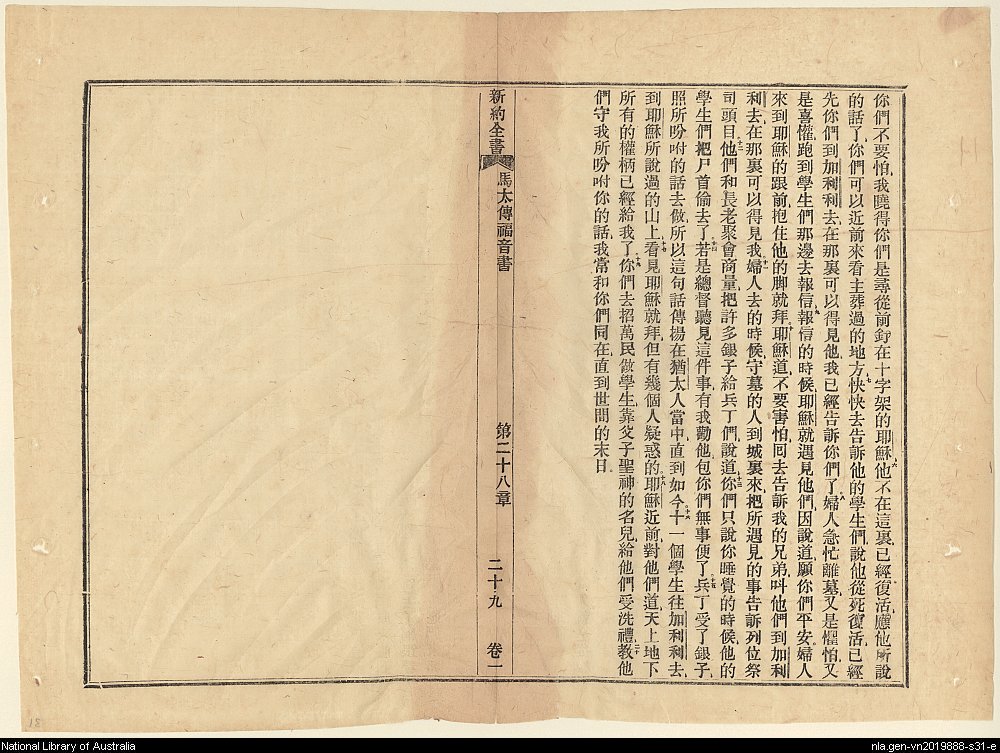 你們不要怕我曉得你們是尋從前釘在十字架的耶穌他不在這裏已經復活應他所說
的話了你們可以近前來看主葬過的地方快快去告訴他的學生們說他從死復活已經
先你們到加利利去在那裏可以得見他我已經告訴你們了婦人急忙離墓又是懼怕又
是喜懽跑到學生們那邊去報信報信的時候耶穌就遇見他們因說道願你們平安婦人
來到耶穌的跟前抱住他的脚就拜耶穌道不要害怕囘去告訴我的兄弟呌他們到加利
利去在那裏可以得見我婦人去的時候守墓的人到城裏來把所遇見的事告訴列位祭
司頭目他們和長老聚會商量把許多銀子給兵丁們說道你們只說你睡覺的時候他的
學生們把尸首偷去了若是總督聽見這件事有我勸他包你們無事便了兵丁受了銀子
照所吩咐的話去做所以這句話傳揚在猶太人當中直到如今十一個學生往加利利去
到耶穌所說過的山上看見耶穌就拜但有幾個人疑惑的耶穌近前對他們道天上地下
所有的權柄已經給我了你們去招萬民做學生靠父子聖神的名兒給他們受洗禮教他
們守我所吩咐你的話我當和你們同在直到世間的末日
新約全書 馬太傳福音書 第二十八章 二十九 卷一
National Library of Australia
nla.gen-vn2019888-s31-e